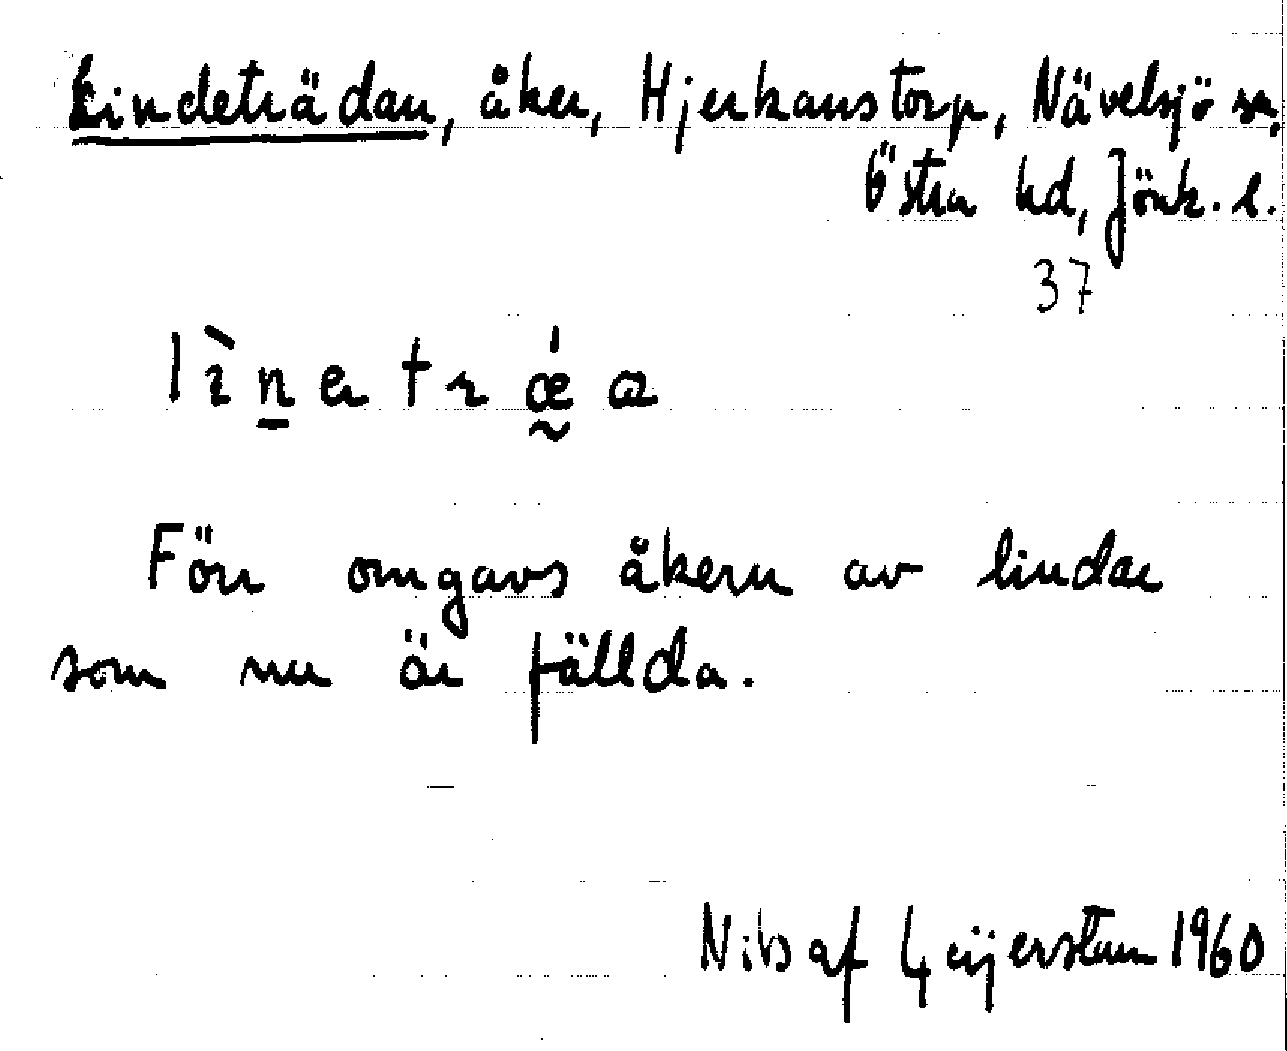 Lindeträdan, åker, Hjerkanstorp, Nävelsjö sn,
Östra hd, Jönk. l.
37
Förr omgavs åkern av lindar
som nu är fällda.
Nils af Geijerstam 1960